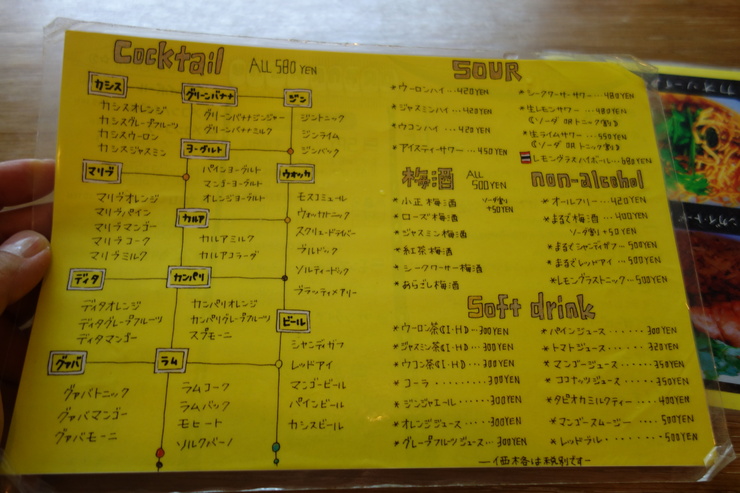 Cocktail ALL 580 YEN
カシス
カシスオレンジ
カシスグレープフルーツ
カシスウーロン
カシスジャスミン
グリーンバナナ
グリーンバナナジンジャー
グリーンバナナミルク
ジン
ジントニック
ジンライム
ジンバック
ヨーグルト
パインヨーグルト
マンゴーヨーグルト
オレンジヨーグルト
マリブ
マリブオレンジ
マリブパイン
マリブマンゴー
マリブコーク
マリブミルク
ウオッカ
モスコミュール
ウォッカトニック
スクリュードライバー
ブルドック
ソルティードック
ブラッティメアリー
カルア
カルアミルク
カルアコラーダ
ディタ
ディタオレンジ
ディタグレープフルーツ
ディタマンゴー
カンパリ
カンパリオレンジ
カンパリグレープフルーツ
スプモーニ
ビール
シャンディガフ
レッドアイ
マンゴービール
パインビール
カシスビール
グァバ
グァバトニック
グァバマンゴー
グァバモーニ
ラム
ラムコーク
ラムバック
モヒート
ソルクバーノ
SOUR
*ウーロンハイ…420YEN
*ジャスミンハイ…420YEN
*ウコンハイ…420YEN
*アイスティーサワー…450YEN
*シークワーサーサワー…480YEN
*生レモンサワー…480YEN
(ソーダ OR トニック割り)
*生ライムサワー…550YEN
(ソーダ OR トニック割り)
レモングラスハイボール…680YEN
梅酒 ALL 500YEN
*小正梅酒
ソーダ割り +50YEN
*ローズ梅酒
*ジャスミン梅酒
*紅茶梅酒
*シークワーサー梅酒
*あらごし梅酒
non-alcohol
*オールフリー…420YEN
*まるで梅酒…400YEN
ソーダ割り +50YEN
*まるでシャンディガフ…500YEN
*まるでレッドアイ…500YEN
*レモングラストニック…500YEN
Soft drink
*ウーロン茶(I・H)…300YEN
*ジャスミン茶(I・H)…300YEN
*ウコン茶(I・H)…300YEN
*コーラ…300YEN
*ジンジャエール…300YEN
*オレンジジュース…300YEN
*グレープフルーツジュース…300YEN
*パインジュース…300YEN
*トマトジュース…320YEN
*マンゴージュース…350YEN
*ココナッツジュース…350YEN
*タピオカミルクティー…400YEN
*マンゴースムージー…500YEN
*レッドブル…500YEN
―価格は税別です―
カオソーイ